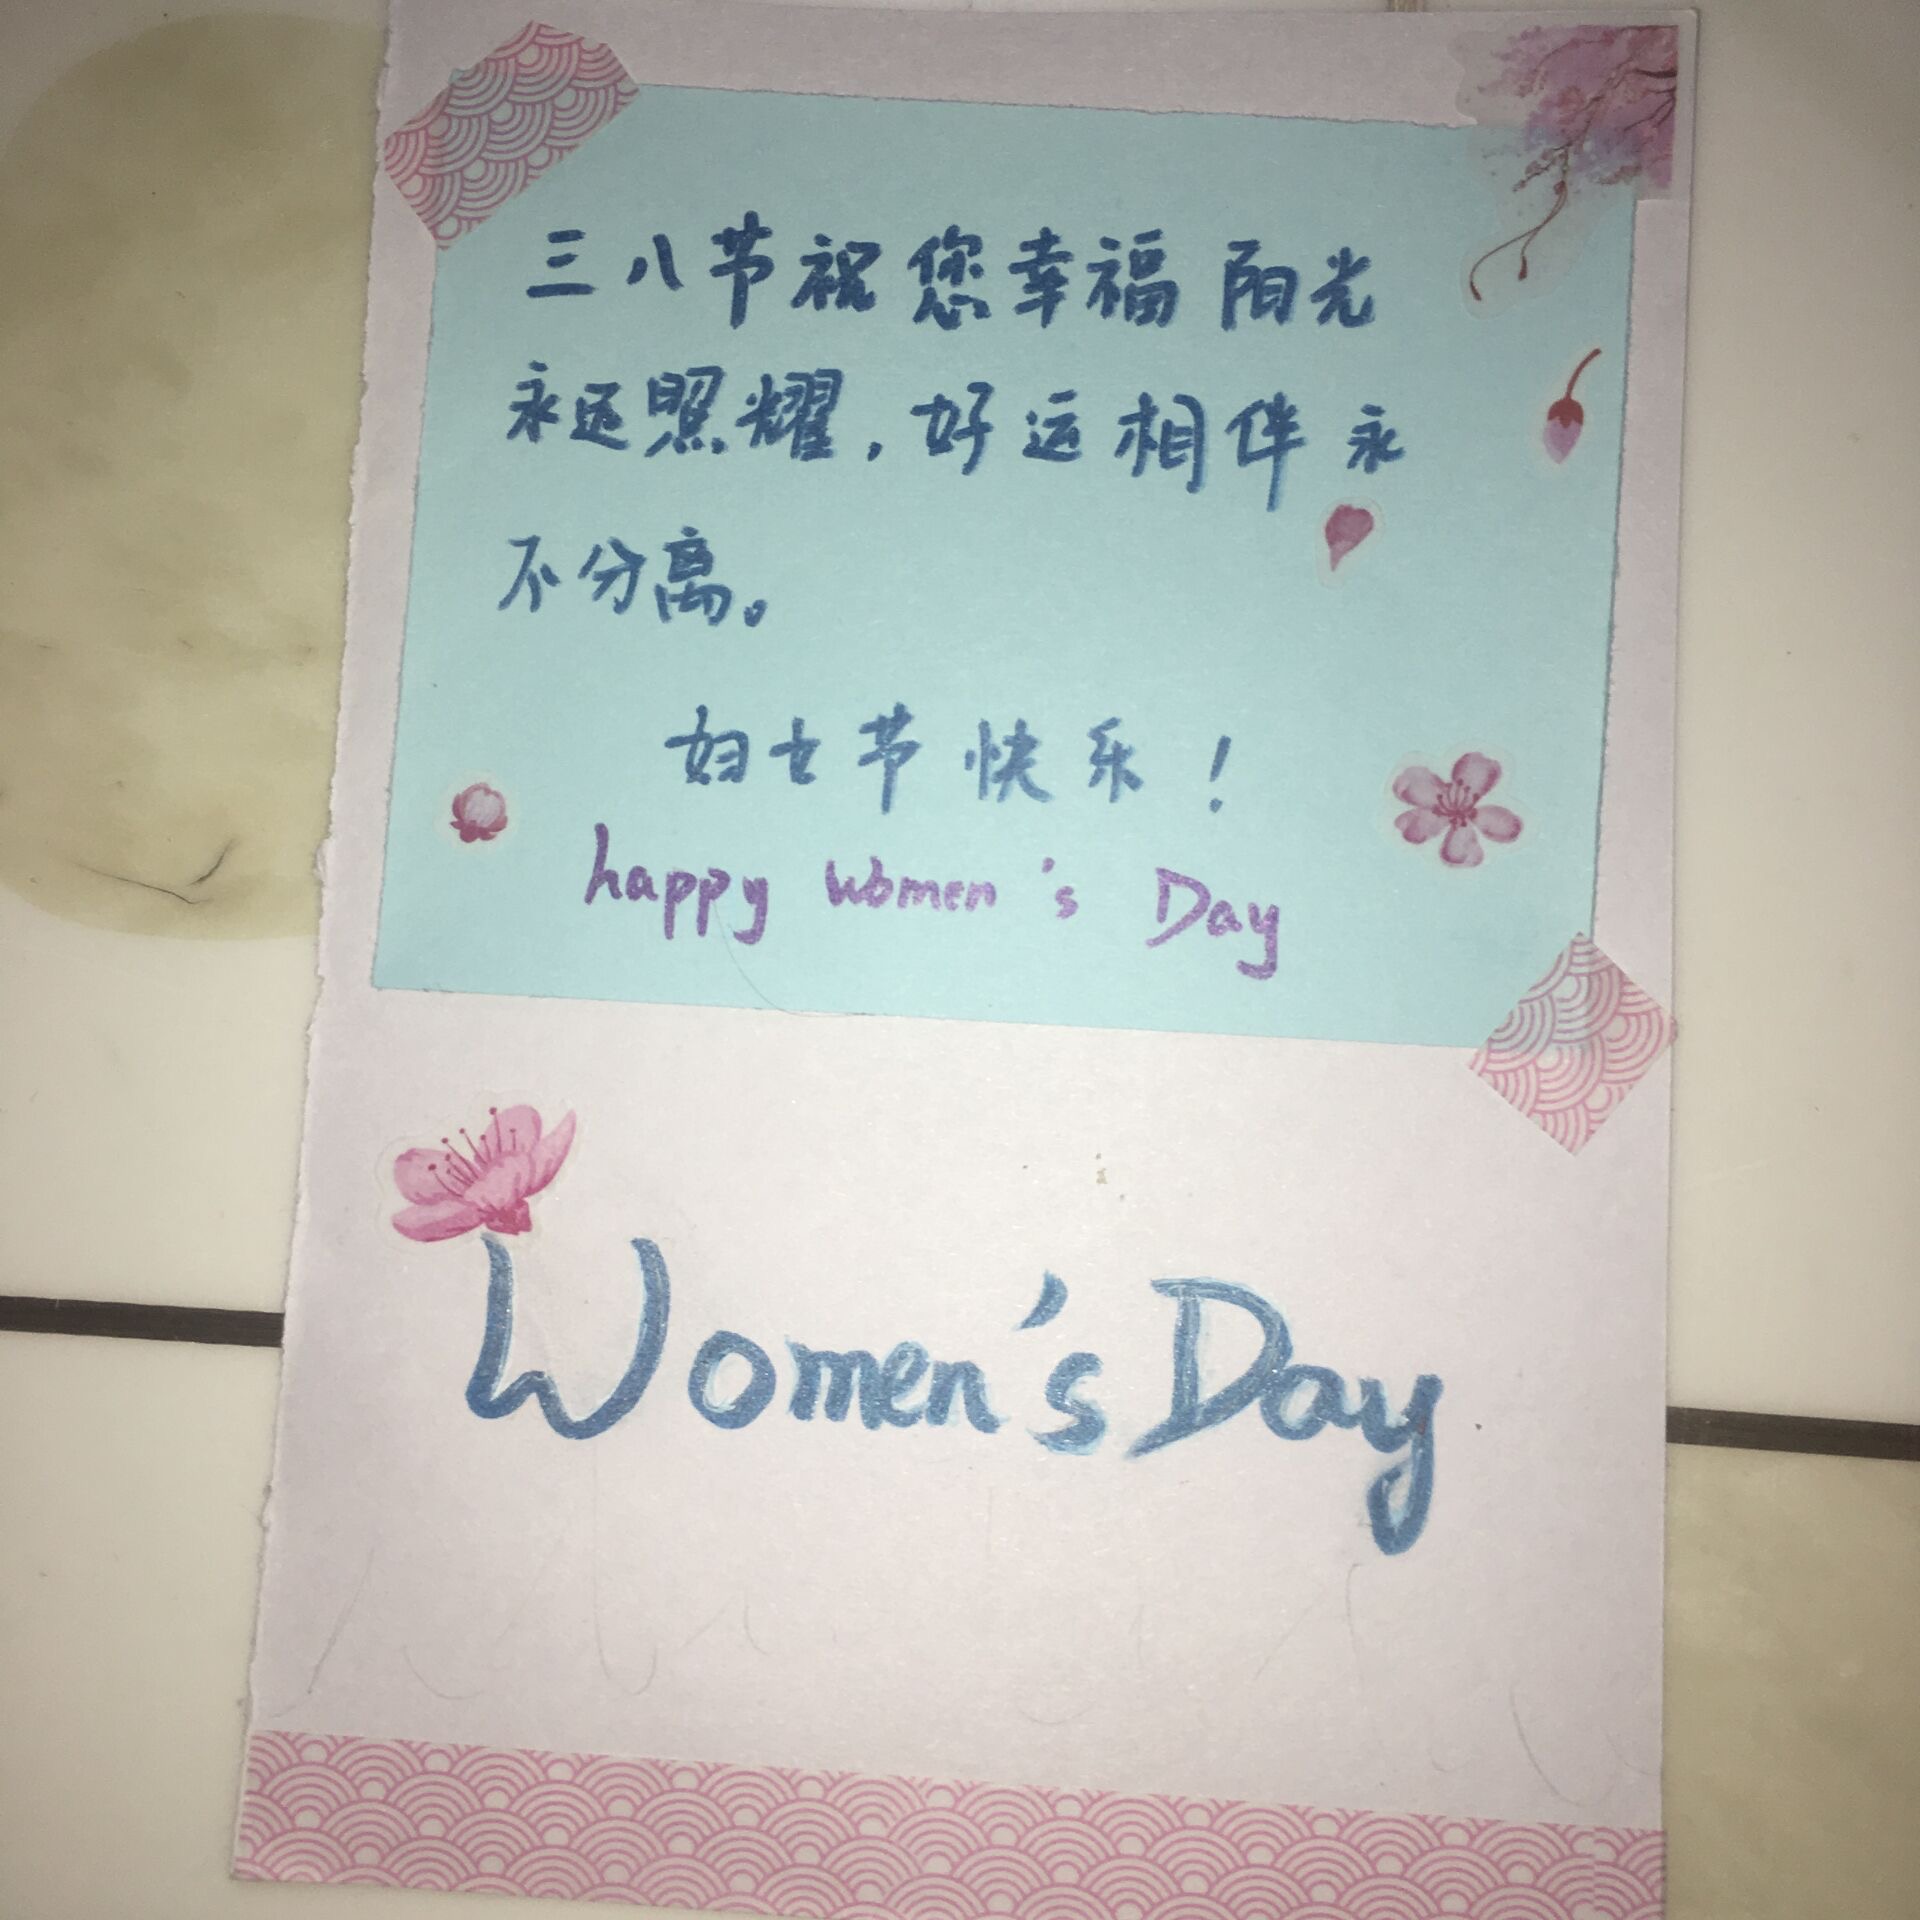 三八节祝您幸福阳光
永远照耀，好运相伴永
不分离。
妇女节快乐！
happy women's Day
Women's Day